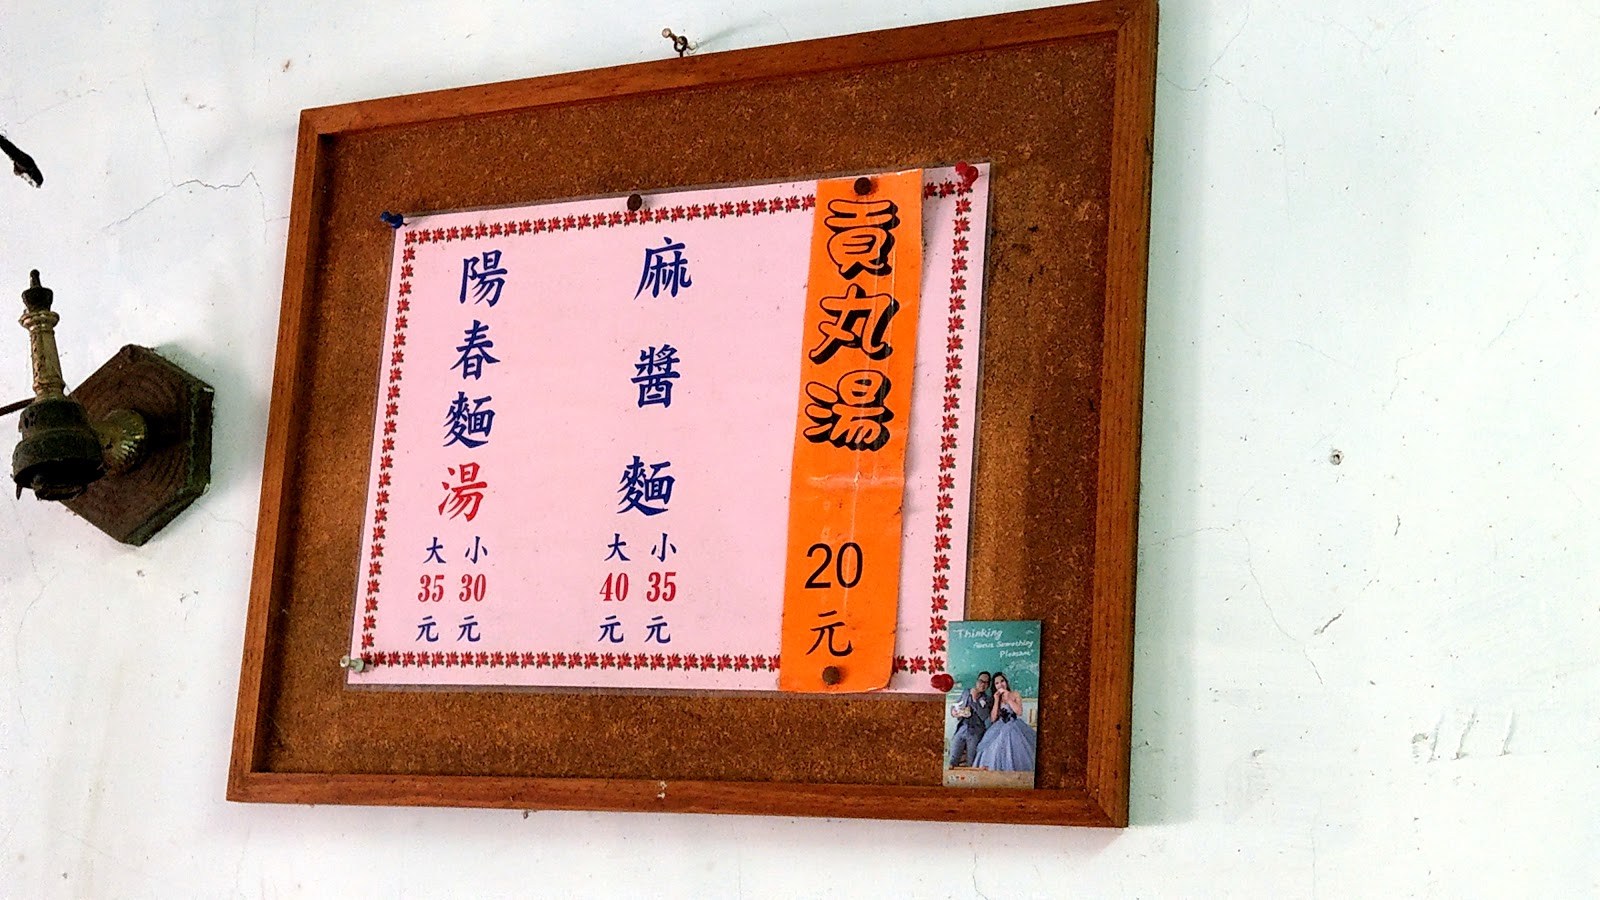 貢丸湯
20
元
麻醬麵
大 小
40 35
元 元
陽春麵湯
大 小
35 30
元 元
Thinking
Pleasant"